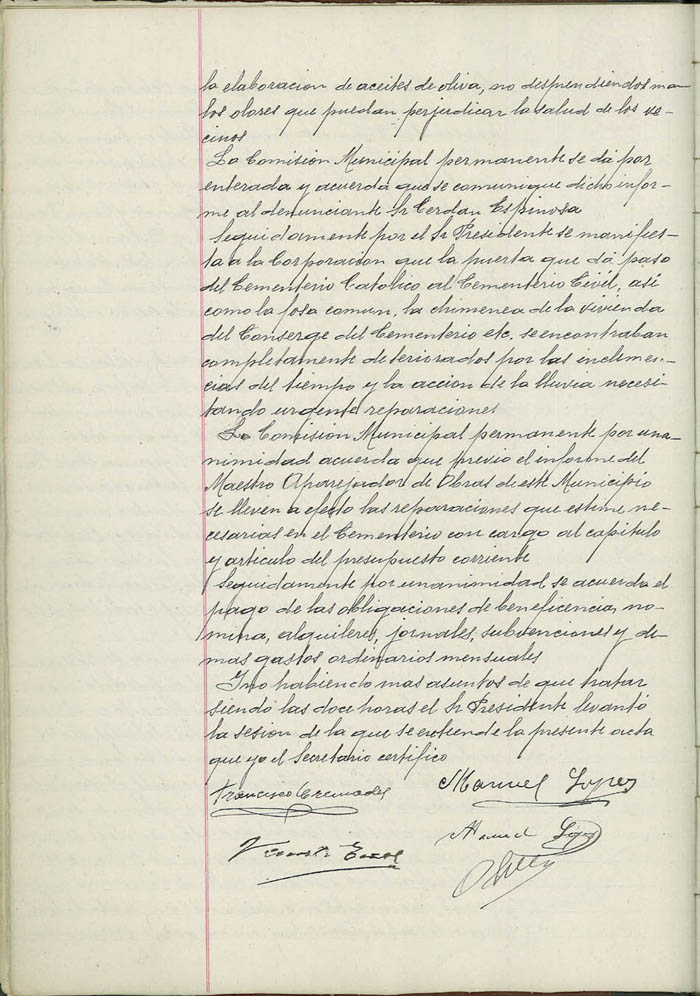 la elaboracion de aceites de oliva, no desprendiendos ma-
los olores que puedan perjudicar la salud de los ve-
cinos
La Comision Municipal permanente se dá por
enterada y acuerda que se comunique dicho infor-
me al denunciante Sr Cerdan Espinosa
Seguidamente por el Sr Presidente se manifies-
ta a la Corporacion que la puerta que dá paso
del Cementerio Catolico al Cementerio Civil, así
como la fosa comun, la chimenea de la vivienda
del Conserge del Cementerio etc. se encontraban
completamente deteriorados por las inclemen-
cias del tiempo y la accion de la lluvia necesi-
tando urgente reparaciones
La Comision Municipal permanente por una-
nimidad acuerda que previo el informe del
Maestro Aparejador de Obras de este Municipio
se lleven a efecto las reparaciones que estime ne-
cesarias en el Cementerio con cargo al capitulo
y articulo del presupuesto corriente
Seguidamente por unanimidad se acuerda el
pago de las obligaciones de beneficencia, no-
mina, alquileres, jornales, subvenciones y de-
mas gastos ordinarios mensuales
Y no habiendo mas asuntos de que tratar
siendo las doce horas el Sr Presidente levantó
la sesion de la que se extiende la presente acta
que yo el Secretario certifico
Francisco Cremades Manuel Lopez
Manuel López